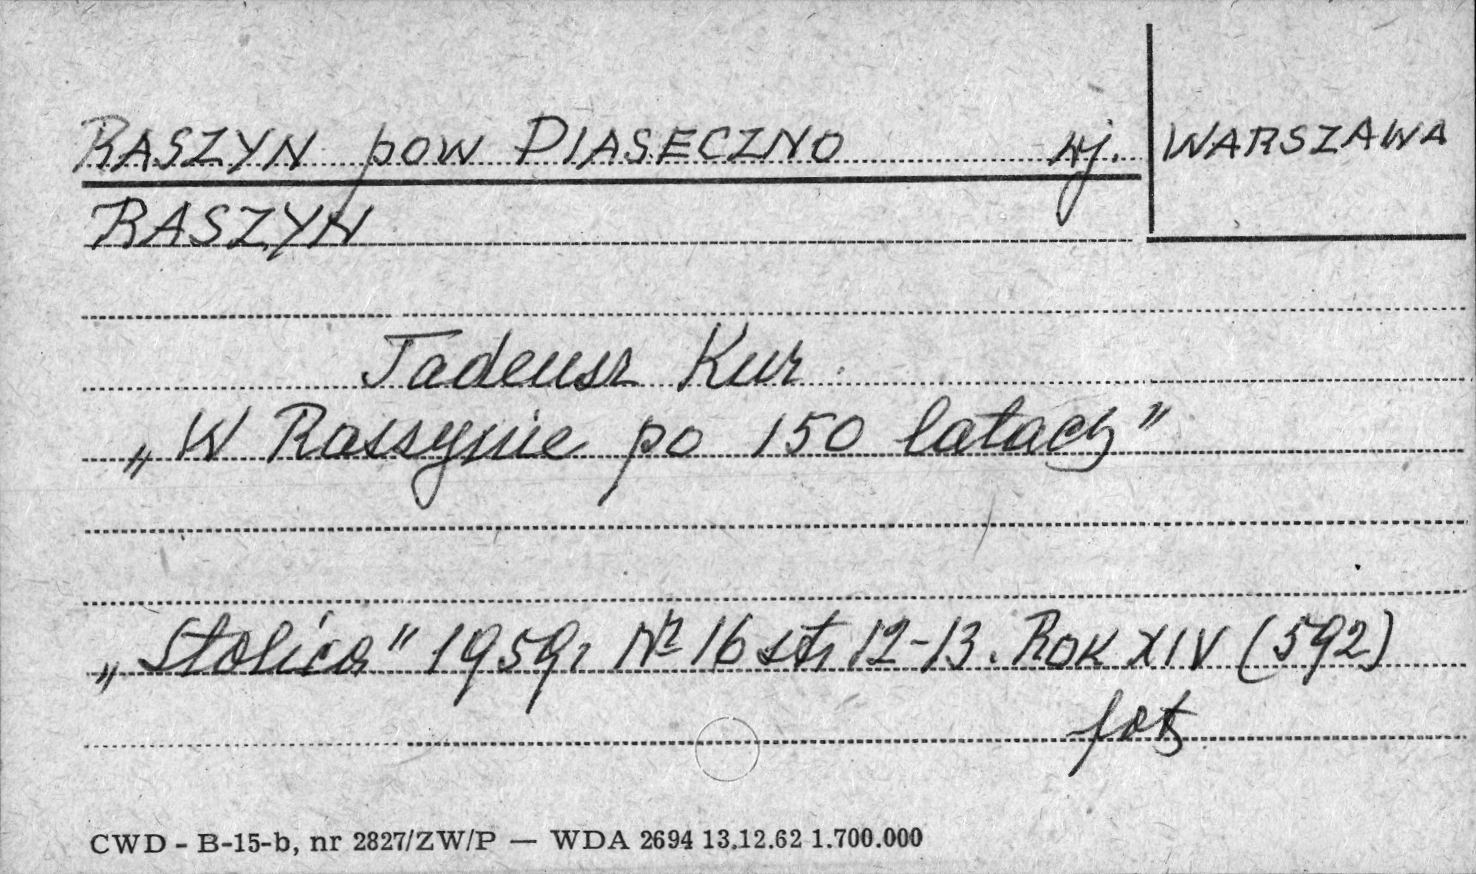 RASZYN pow PIASECZNO wj. WARSZAWA
RASZYN
Tadeusz Kur
„W Raszynie po 150 latach”
„Stolica” 1959r Nr 16 str 12-13. Rok XIV (592)
fot.
CWD - B-15-b, nr 2827/ZW/P — WDA 2694 13.12.62 1.700.000